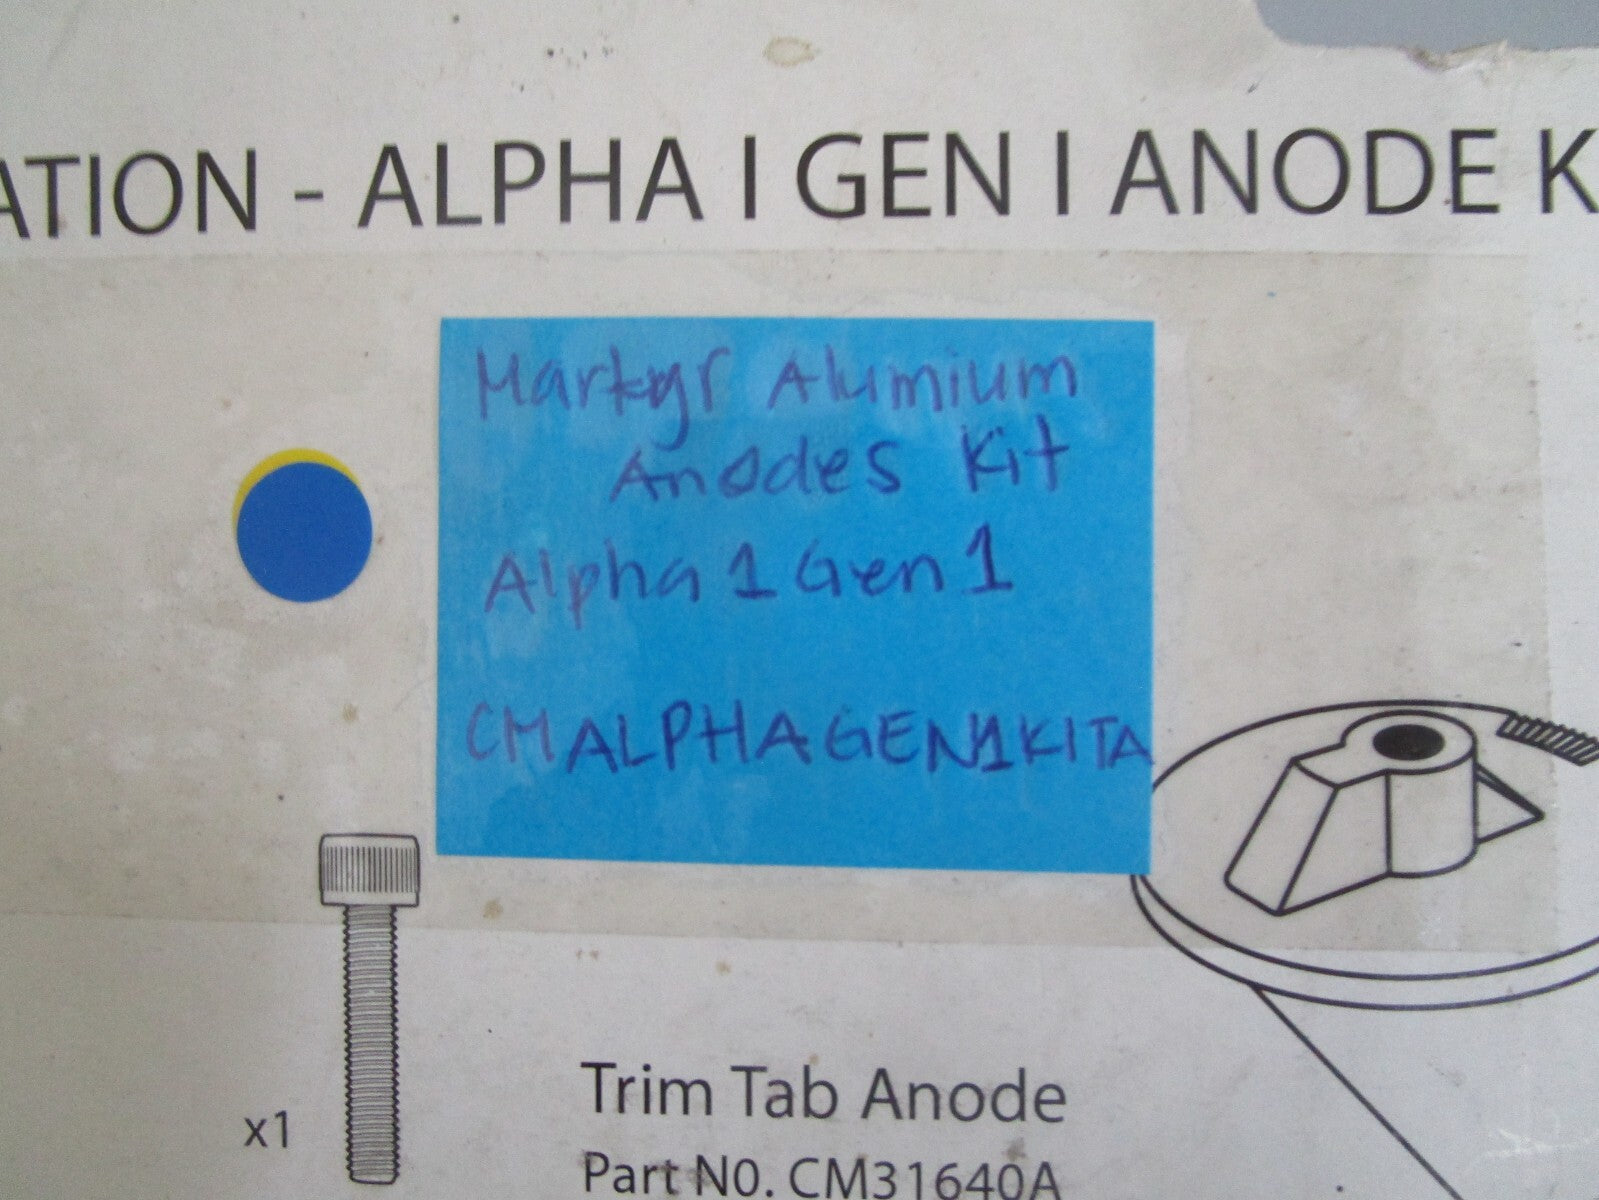 ATION - ALPHA I GEN I ANODE K
Martyr Alumium
Anodes Kit
Alpha 1 Gen 1
CMALPHAGEN1KITA
x1
Trim Tab Anode
Part N0. CM31640A